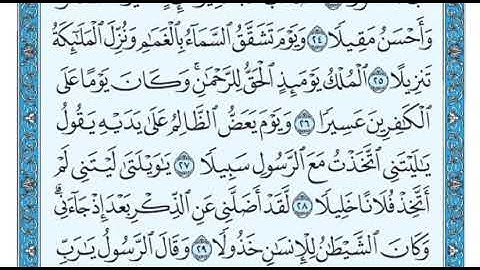 وَأَحْسَنُ مَقِيلًا ٢٤ وَيَوْمَ تَشَقَّقُ ٱلسَّمَآءُ بِٱلْغَمَٰمِ وَنُزِّلَ ٱلْمَلَٰٓئِكَةُ
تَنزِيلًا ٢٥ ٱلْمُلْكُ يَوْمَئِذٍ ٱلْحَقُّ لِلرَّحْمَٰنِۚ وَكَانَ يَوْمًا عَلَى
ٱلْكَٰفِرِينَ عَسِيرًا ٢٦ وَيَوْمَ يَعَضُّ ٱلظَّالِمُ عَلَىٰ يَدَيْهِ يَقُولُ
يَٰلَيْتَنِي ٱتَّخَذْتُ مَعَ ٱلرَّسُولِ سَبِيلًا ٢٧ يَٰوَيْلَتَىٰ لَيْتَنِي لَمْ
أَتَّخِذْ فُلَانًا خَلِيلًا ٢٨ لَّقَدْ أَضَلَّنِي عَنِ ٱلذِّكْرِ بَعْدَ إِذْ جَآءَنِيۗ
وَكَانَ ٱلشَّيْطَٰنُ لِلْإِنسَٰنِ خَذُولًا ٢٩ وَقَالَ ٱلرَّسُولُ يَٰرَبِّ